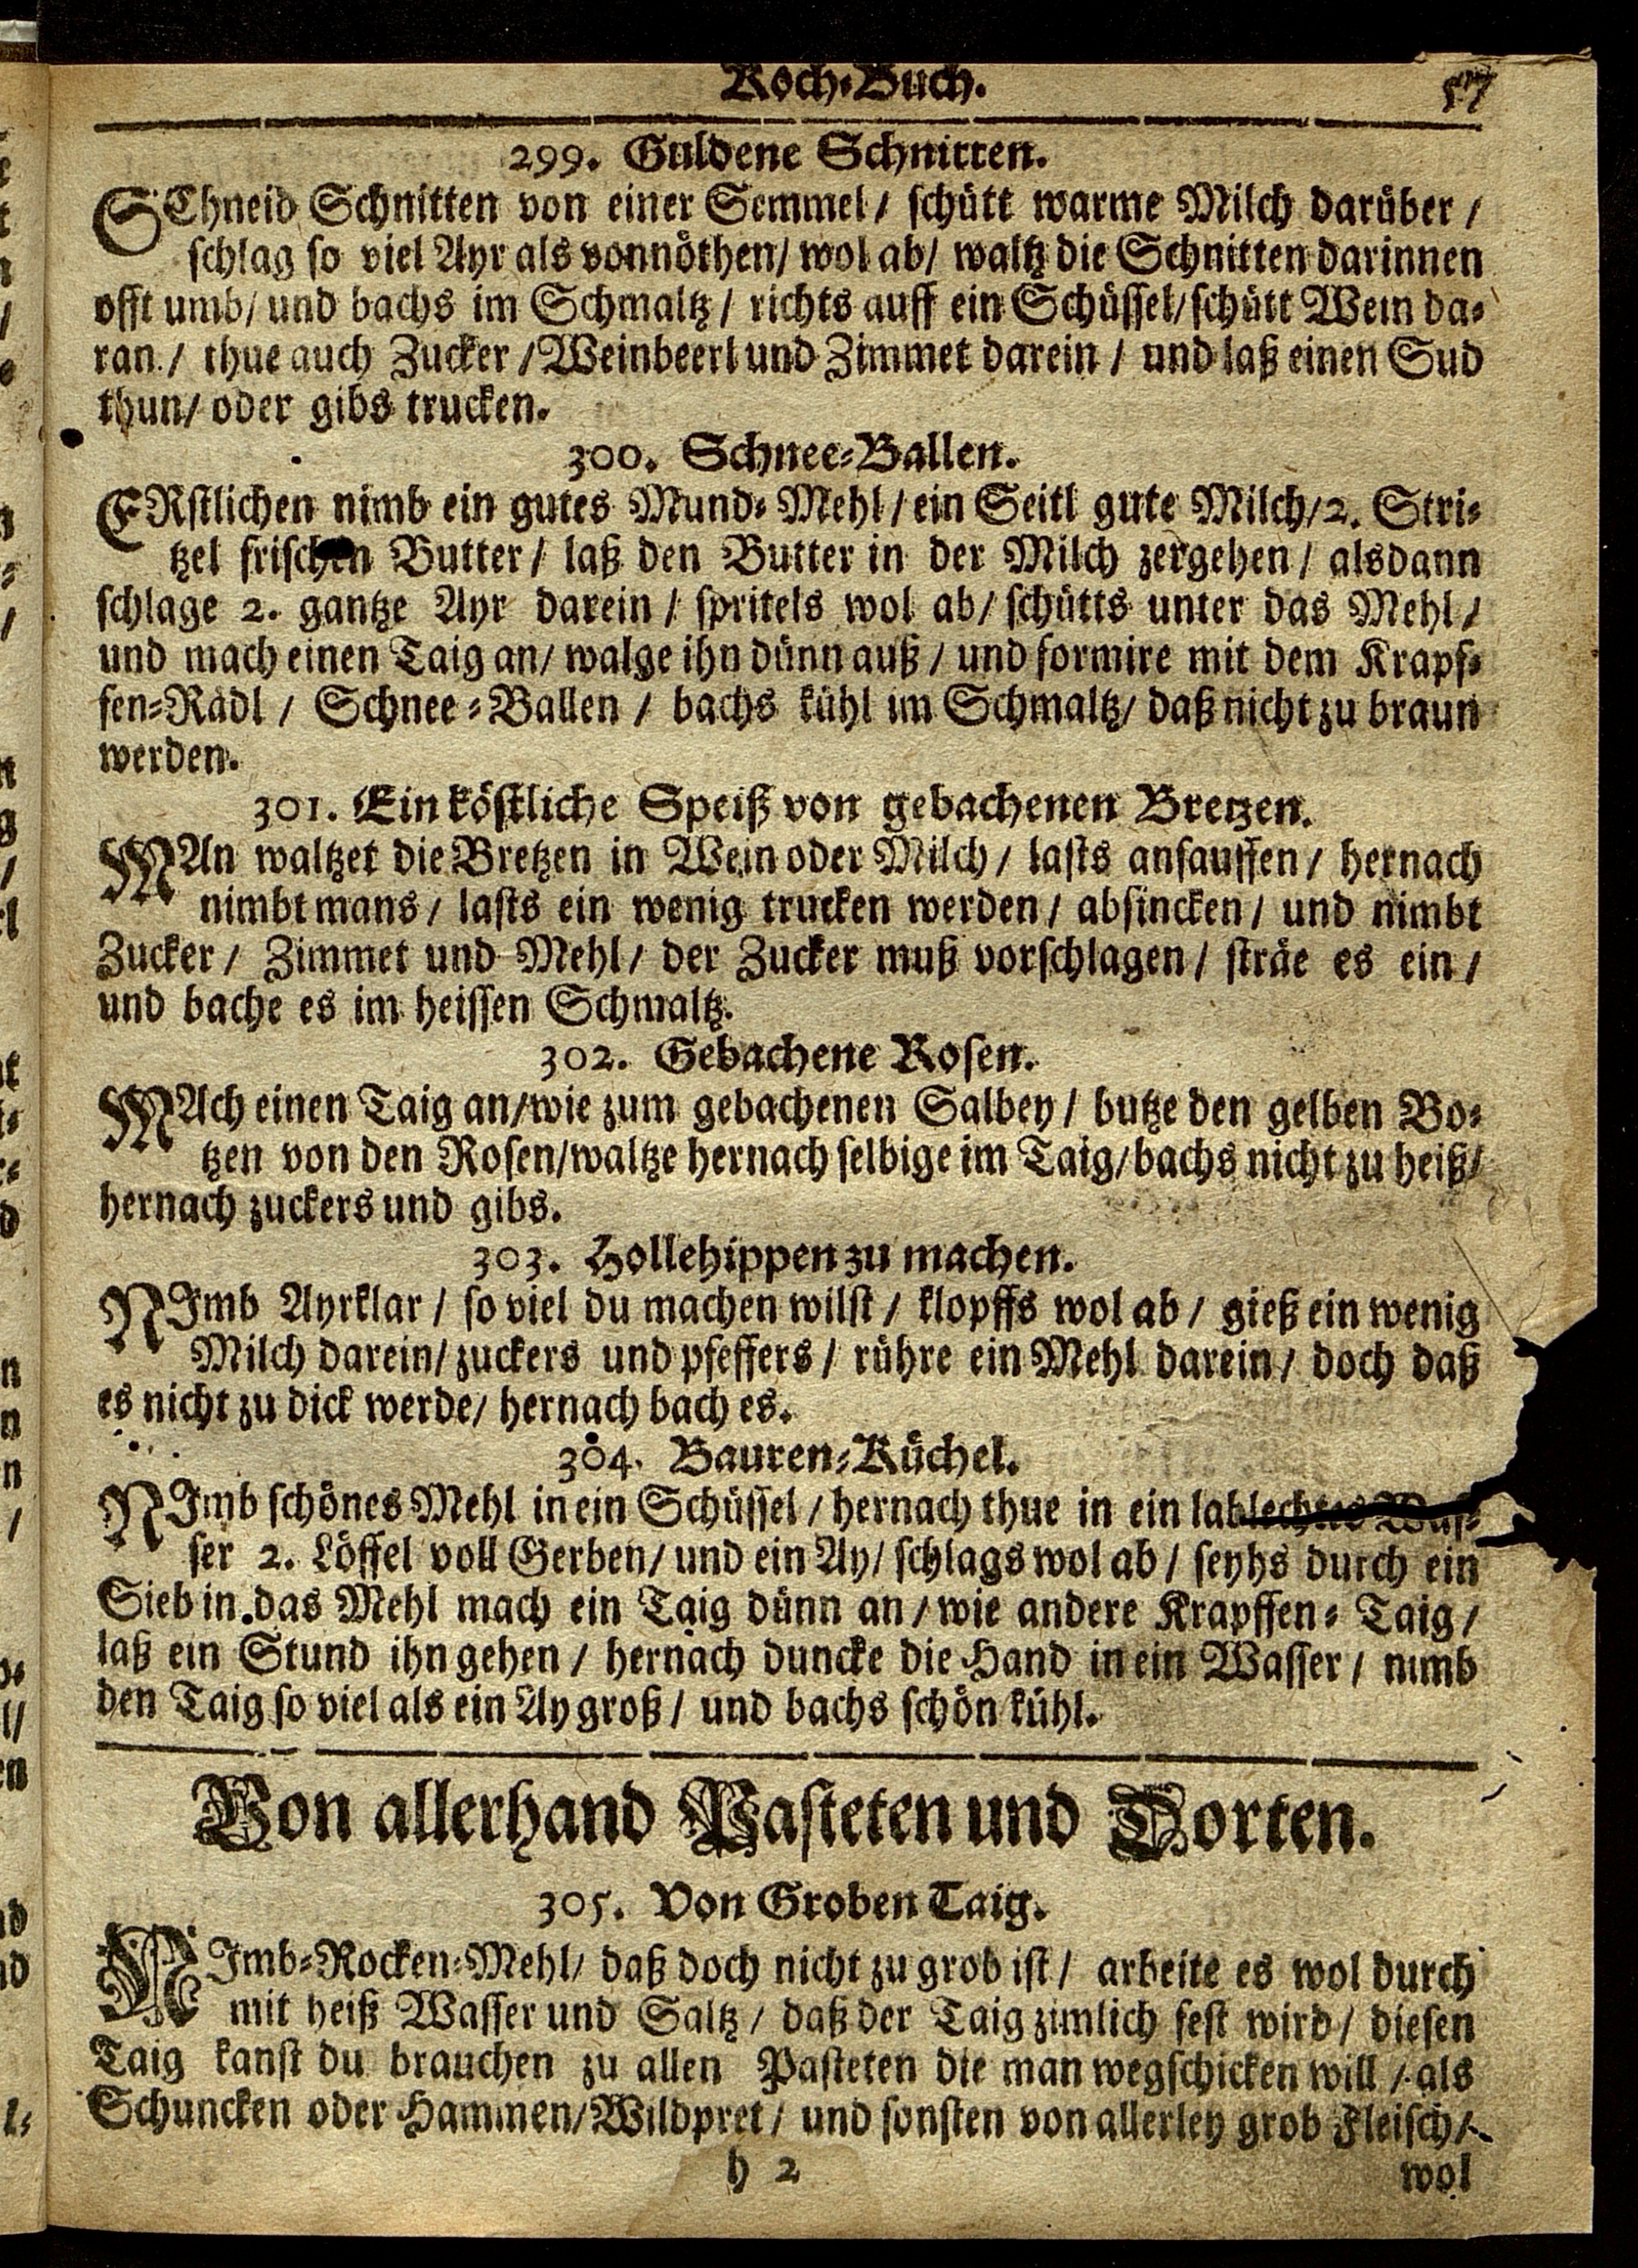 Koch-Buch. 57
299. Guldene Schnitten.
SChneid Schnitten von einer Semmel / schütt warme Milch darüber /
schlag so viel Ayr als vonnöthen / wol ab / waltz die Schnitten darinnen
offt umb / und bachs im Schmaltz / richts auff ein Schüssel / schütt Wein da-
ran / thue auch Zucker / Weinbeerl und Zimmet darein / und laß einen Sud
thun / oder gibs trucken.
300. Schnee-Ballen.
ERstlichen nimb ein gutes Mund-Mehl / ein Seitl gute Milch / 2. Stri-
tzel frischen Butter / laß den Butter in der Milch zergehen / alsdann
schlage 2. gantze Ayr darein / spritels wol ab / schütts unter das Mehl /
und mach einen Taig an / walge ihn dünn auß / und formire mit dem Krapf-
fen-Rädl / Schnee-Ballen / bachs kühl im Schmaltz / daß nicht zu braun
werden.
301. Ein köstliche Speiß von gebachenen Bretzen.
MAn waltzet die Bretzen in Wein oder Milch / lasts ansauffen / hernach
nimbt mans / lasts ein wenig trucken werden / absincken / und nimbt
Zucker / Zimmet und Mehl / der Zucker muß vorschlagen / sträe es ein /
und bache es im heissen Schmaltz.
302. Gebachene Rosen.
MAch einen Taig an / wie zum gebachenen Salbey / butze den gelben Bo-
tzen von den Rosen / waltze hernach selbige im Taig / bachs nicht zu heiß /
hernach zuckers und gibs.
303. Hollehippen zu machen.
NImb Ayrklar / so viel du machen wilst / klopffs wol ab / gieß ein wenig
Milch darein / zuckers und pfeffers / rühre ein Mehl darein / doch daß
es nicht zu dick werde / hernach bach es.
304. Bauren-Küchel.
NImb schönes Mehl in ein Schüssel / hernach thue in ein lablechtes Was-
ser 2. Löffel voll Gerben / und ein Ay / schlags wol ab / seyhs durch ein
Sieb in das Mehl mach ein Taig dünn an / wie andere Krapffen-Taig /
laß ein Stund ihn gehen / hernach duncke die Hand in ein Wasser / nimb
den Taig so viel als ein Ay groß / und bachs schön kühl.
Von allerhand Pasteten und Dorten.
305. Von Groben Taig.
NImb-Rocken-Mehl / daß doch nicht zu grob ist / arbeite es wol durch
mit heiß Wasser und Saltz / daß der Taig zimlich fest wird / diesen
Taig kanst du brauchen zu allen Pasteten die man wegschicken will / als
Schuncken oder Hammen / Wildpret / und sonsten von allerley grob Fleisch /
h 2 wol